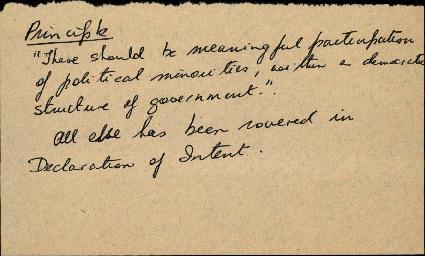 Principle
"There should be meaningful participation
of political minorities, within a democratic
structure of government".
All else has been covered in
Declaration of Intent.